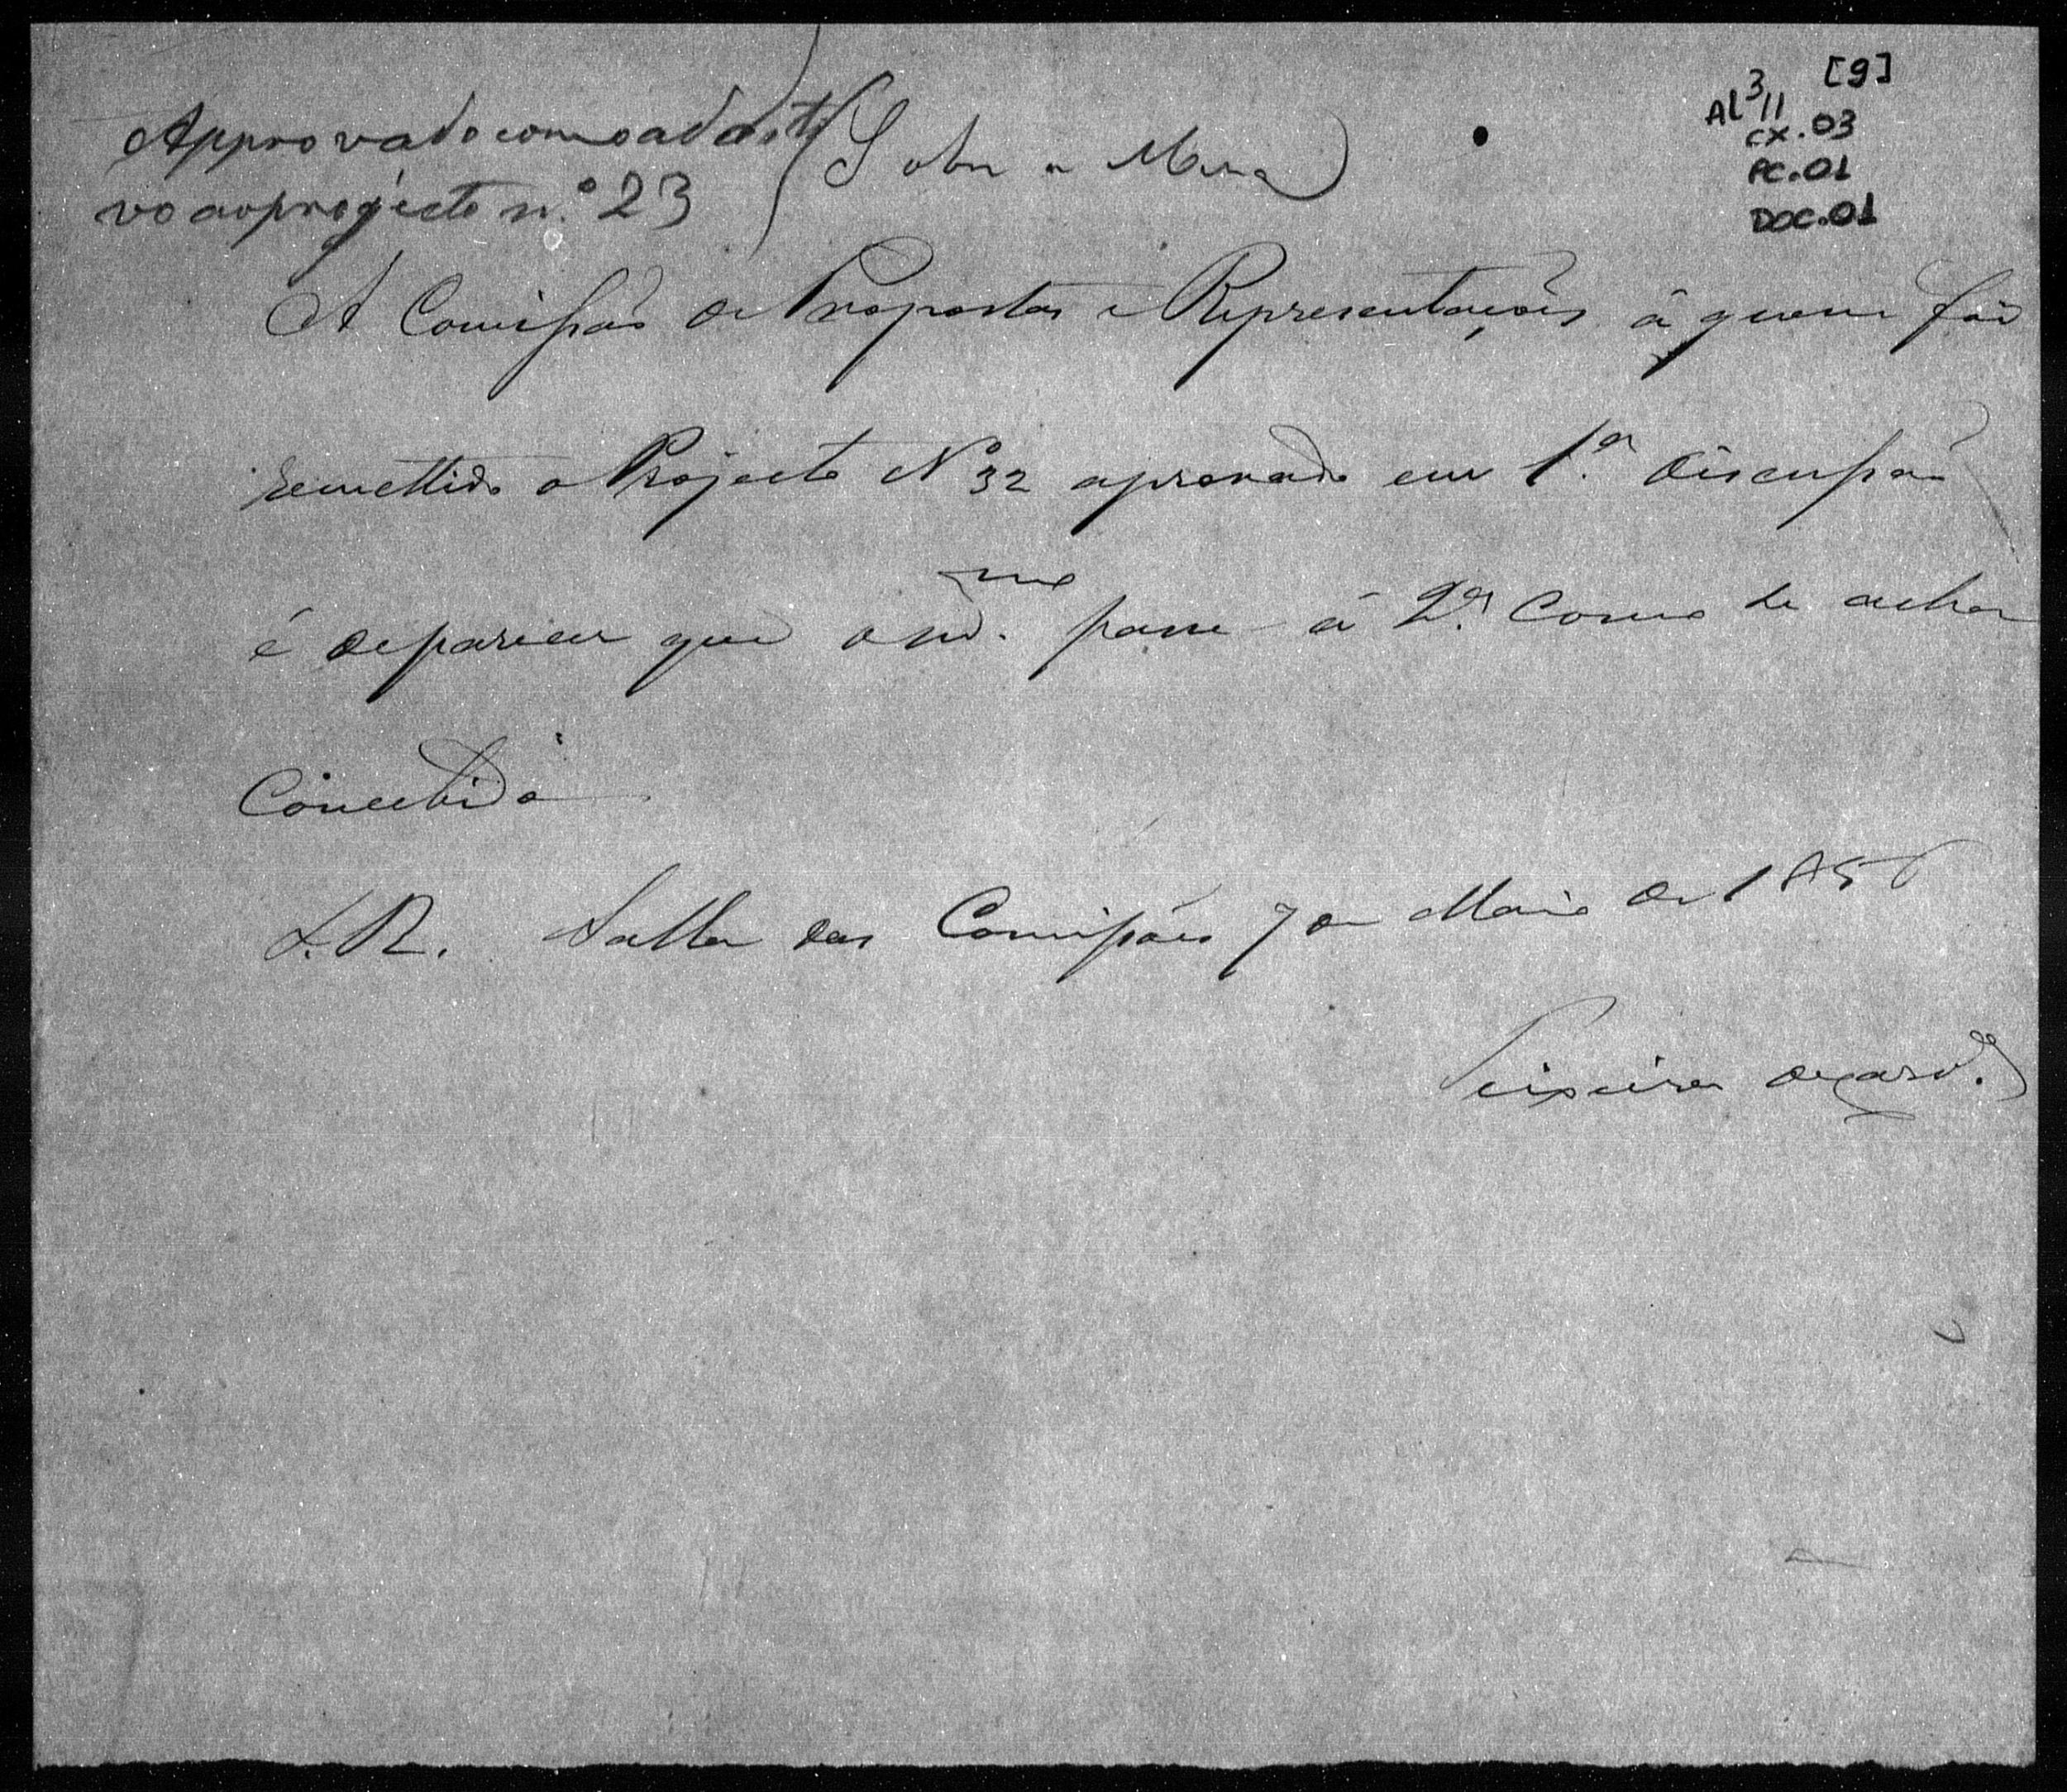 [9]
AL 3/11
CX.03
PC.01
DOC.01
Approvado como additi
vo ao projecto n.º 23
(Sobre a Mesa)
A Comissão de Propostas e Representações á quem foi
remettido o Projecto Nº 32 aprovado em 1.ª discussão
é de parecer que o mesmo passe á 2.ª como se acha
Concebido
S.R. Salla das Comissões 7 de Maio de 1856
Teixeira